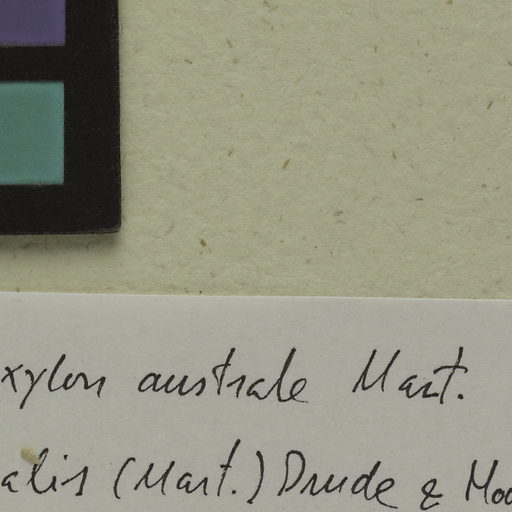 xylon australe Mart.
alis (Mart.) Drude &